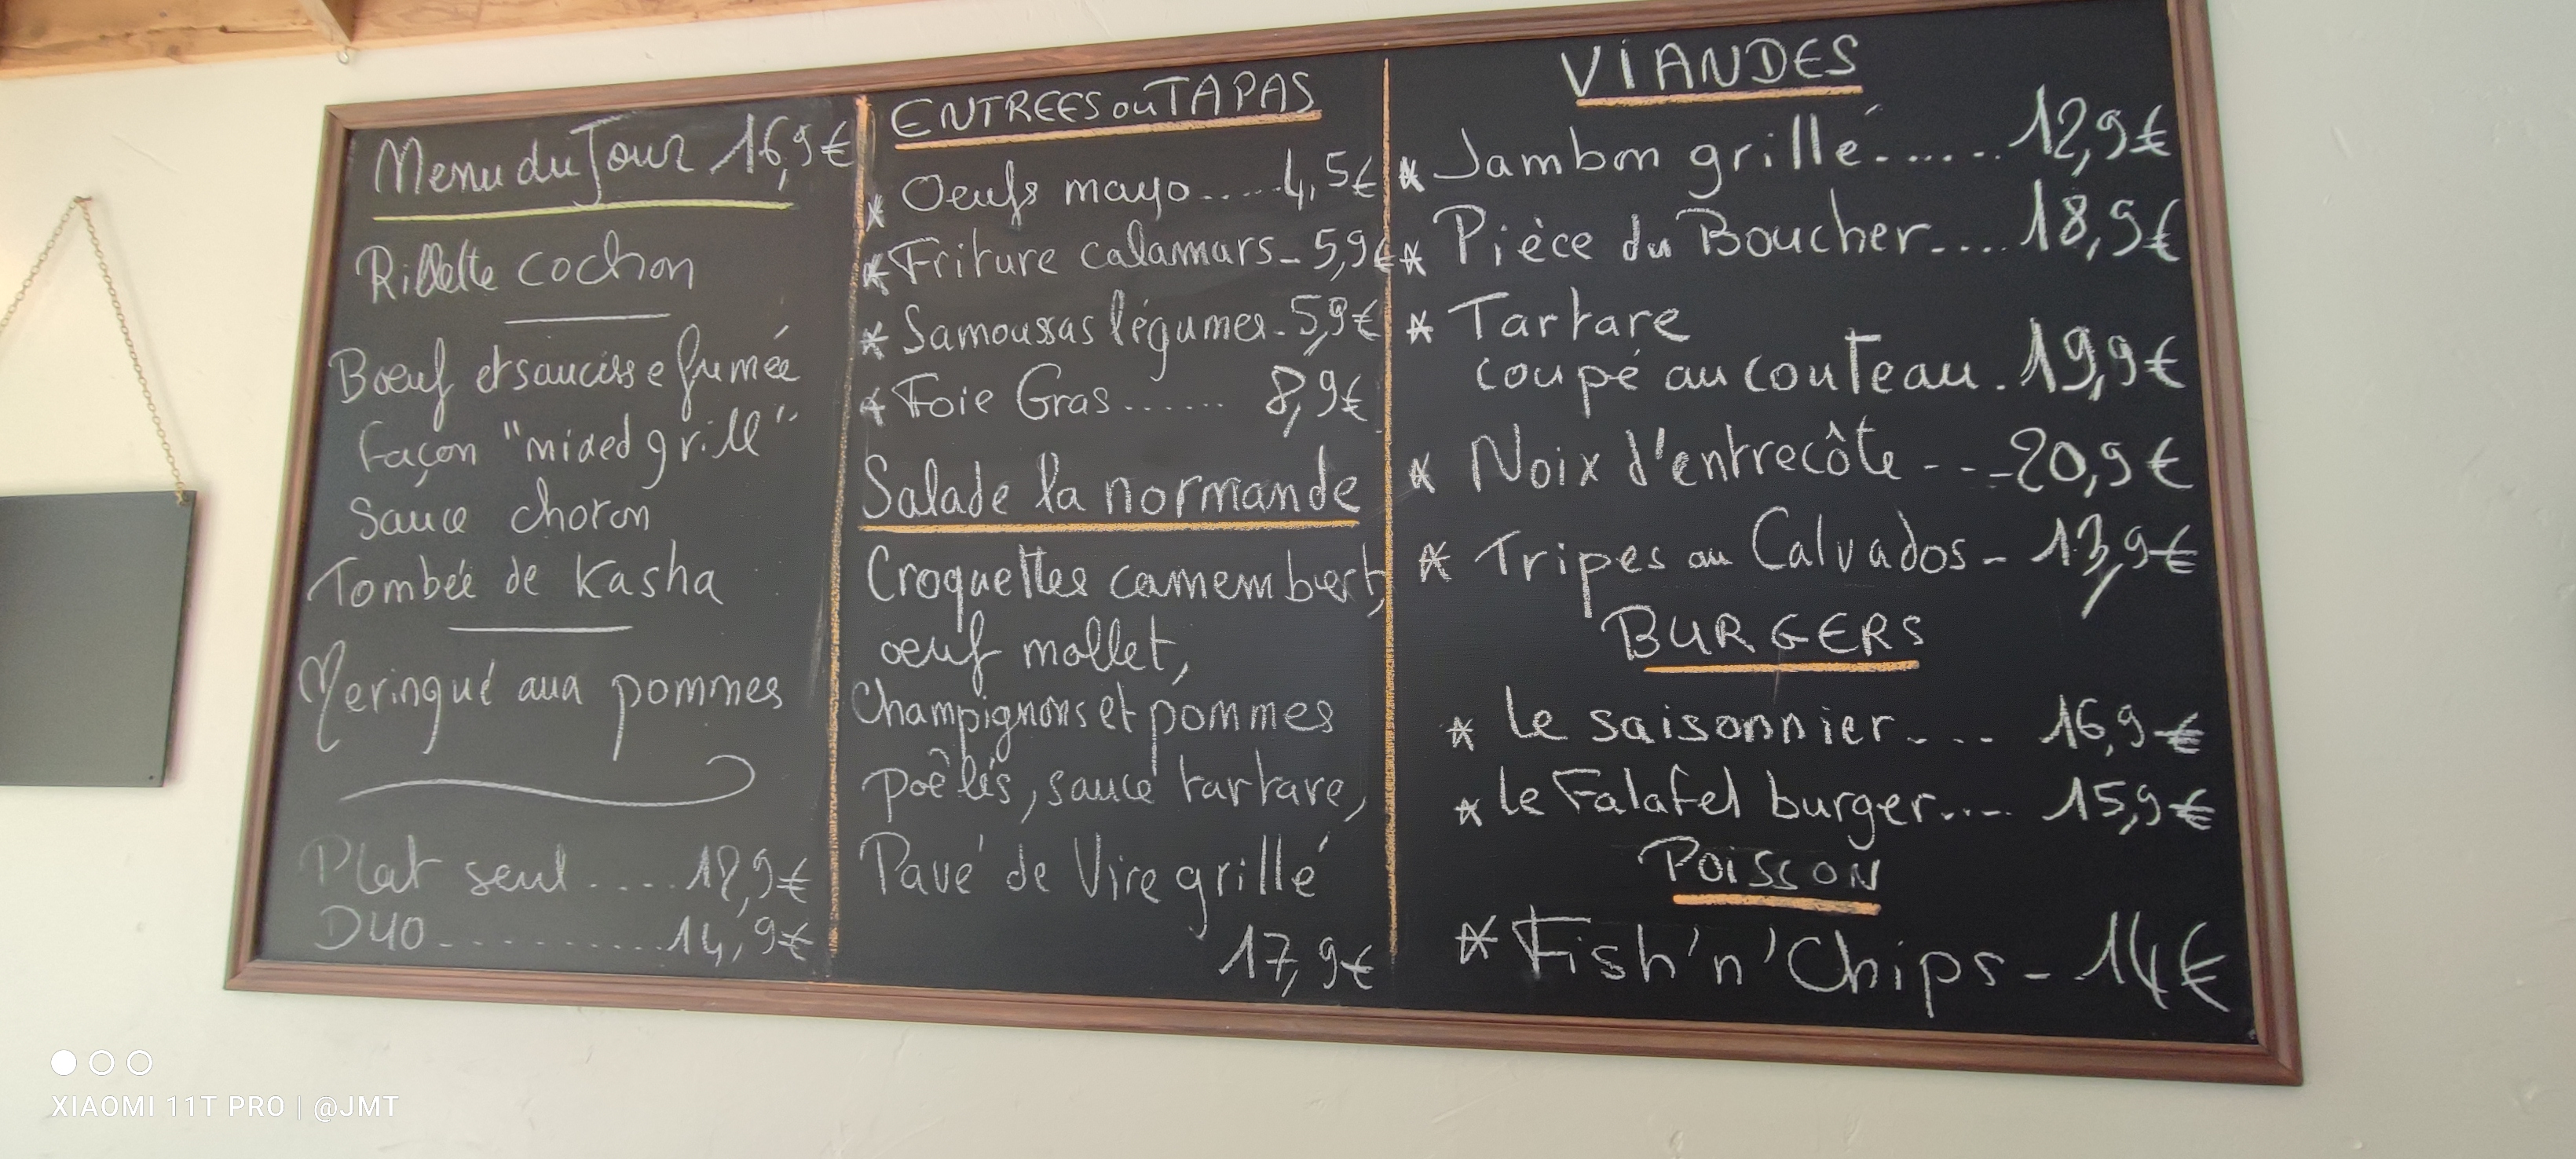 Menu du Jour 16,9€
Rillette cochon
Bœuf et saucisse fumée
façon "mixed grill"
Sauce choron
Tombée de Kasha
Meringué aux pommes
Plat seul.....12,9€
DUO..........14,9€
ENTREES ou TAPAS
* Oeufs mayo.....4,5€
* Friture calamars_5,9€
* Samoussas légumes_5,9€
* Foie Gras...... 8,9€
Salade la normande
Croquettes camembert,
oeuf mollet,
Champignons et pommes
poêlés, sauce tartare,
Pavé de Vire grillé
17,9€
VIANDES
* Jambon grillé......12,9€
* Pièce du Boucher....18,9€
* Tartare
coupé au couteau.19,9€
* Noix d'entrecôte ---20,9€
* Tripes au Calvados-13,9€
BURGERS
* le saisonnier.... 16,9€
* le Falafel burger.... 15,9€
POISSON
* Fish'n'Chips-14€
XIAOMI 11T PRO | @JMT